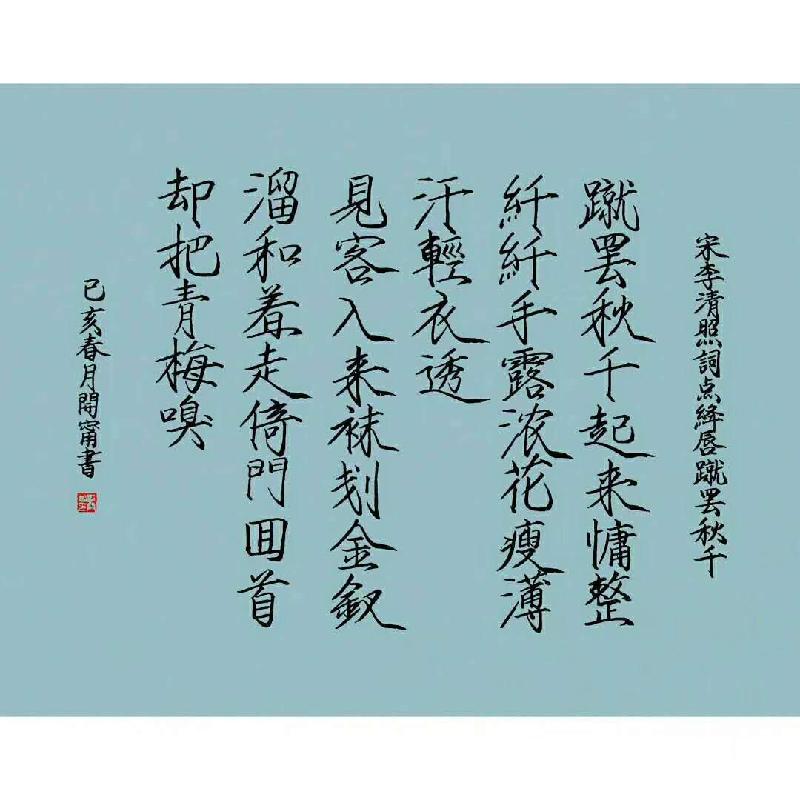 宋李清照詞点絳唇蹴罢秋千
蹴罢秋千起来慵整
纤纤手露浓花瘦薄
汗輕衣透
見客入来袜刬金釵
溜和羞走倚門囬首
却把青梅嗅
己亥春月開甯書